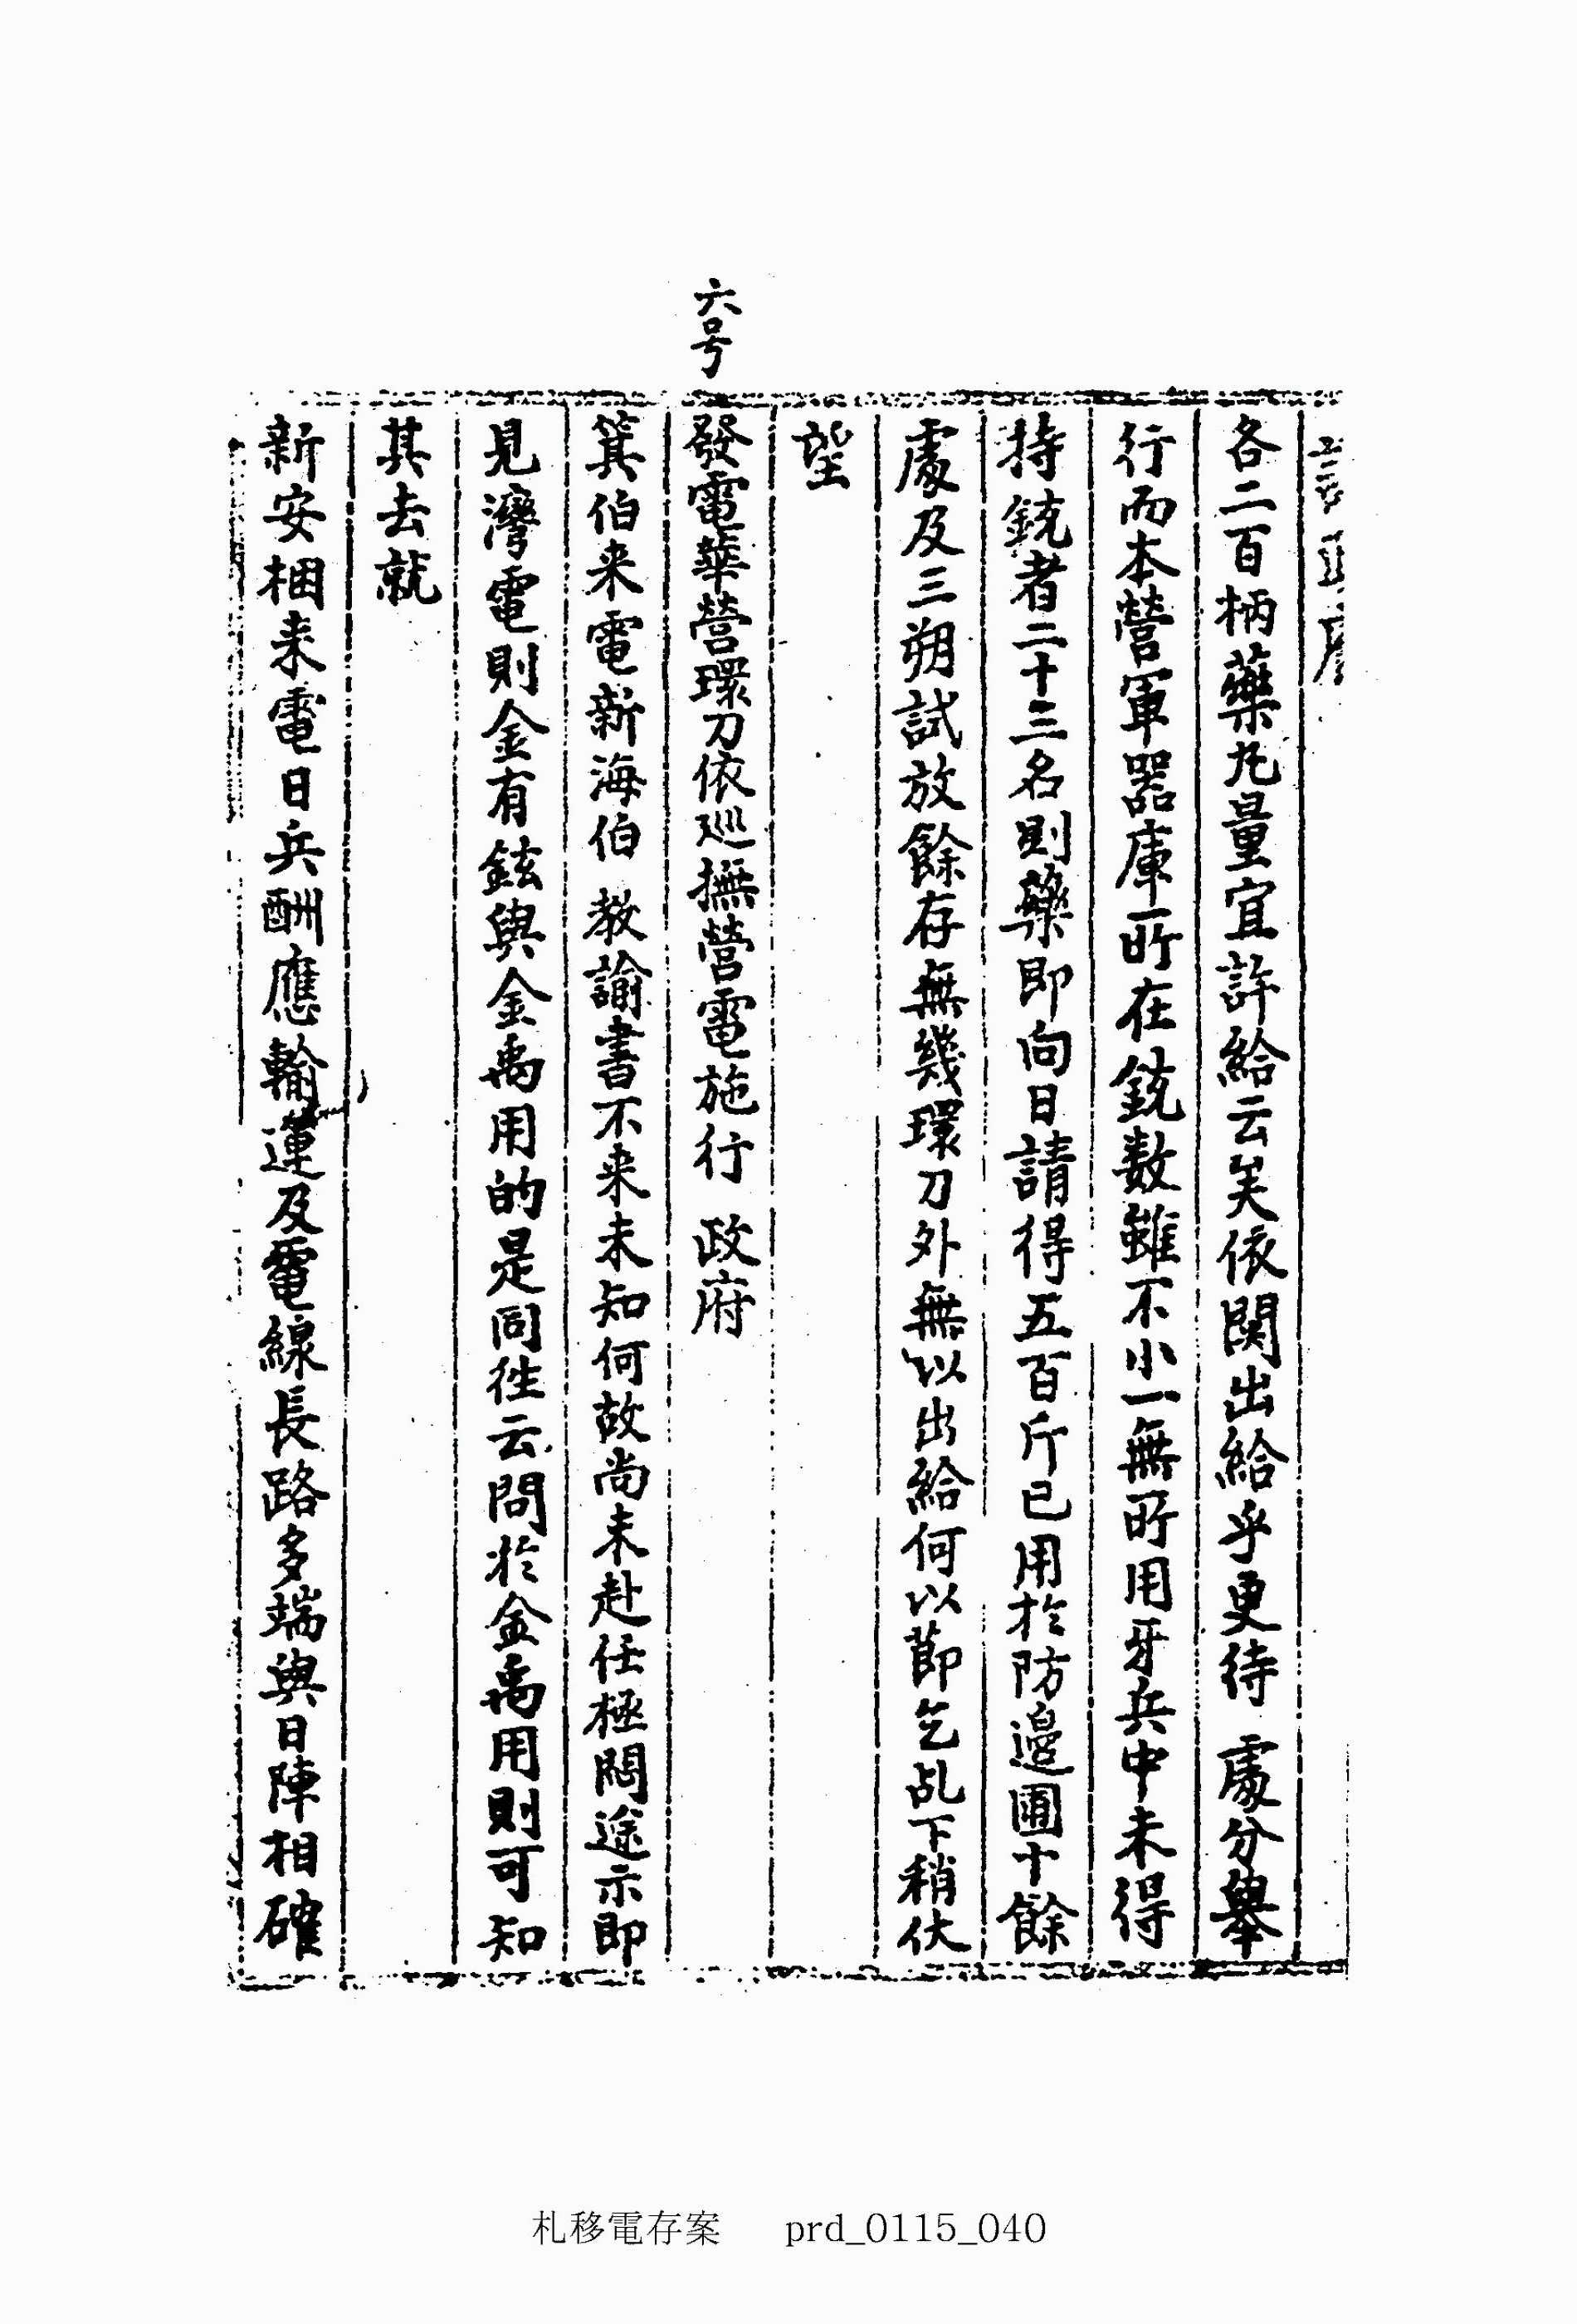 各二百柄藥丸量宜許給云矣依関出給乎更待 處分舉
行而本營軍器庫所在銃数雖不小一無所用牙兵中未得
持銃者二十三名則藥即向日請得五百斤已用於防邊圃十餘
處及三朔試放餘存無幾環刀外無以出給何以節乞乩下稍伏
望
六号
發電華營環刀依巡撫營電施行 政府
箕伯来電新海伯 教諭書不来未知何故尚未赴任極悶途示即
見灣電則金有鉉與金禹用的是同徃云問於金禹用則可知
其去就
新安梱来電日兵酬應輸運及電線長路多端與日陣相確
札移電存案 prd_0115_040